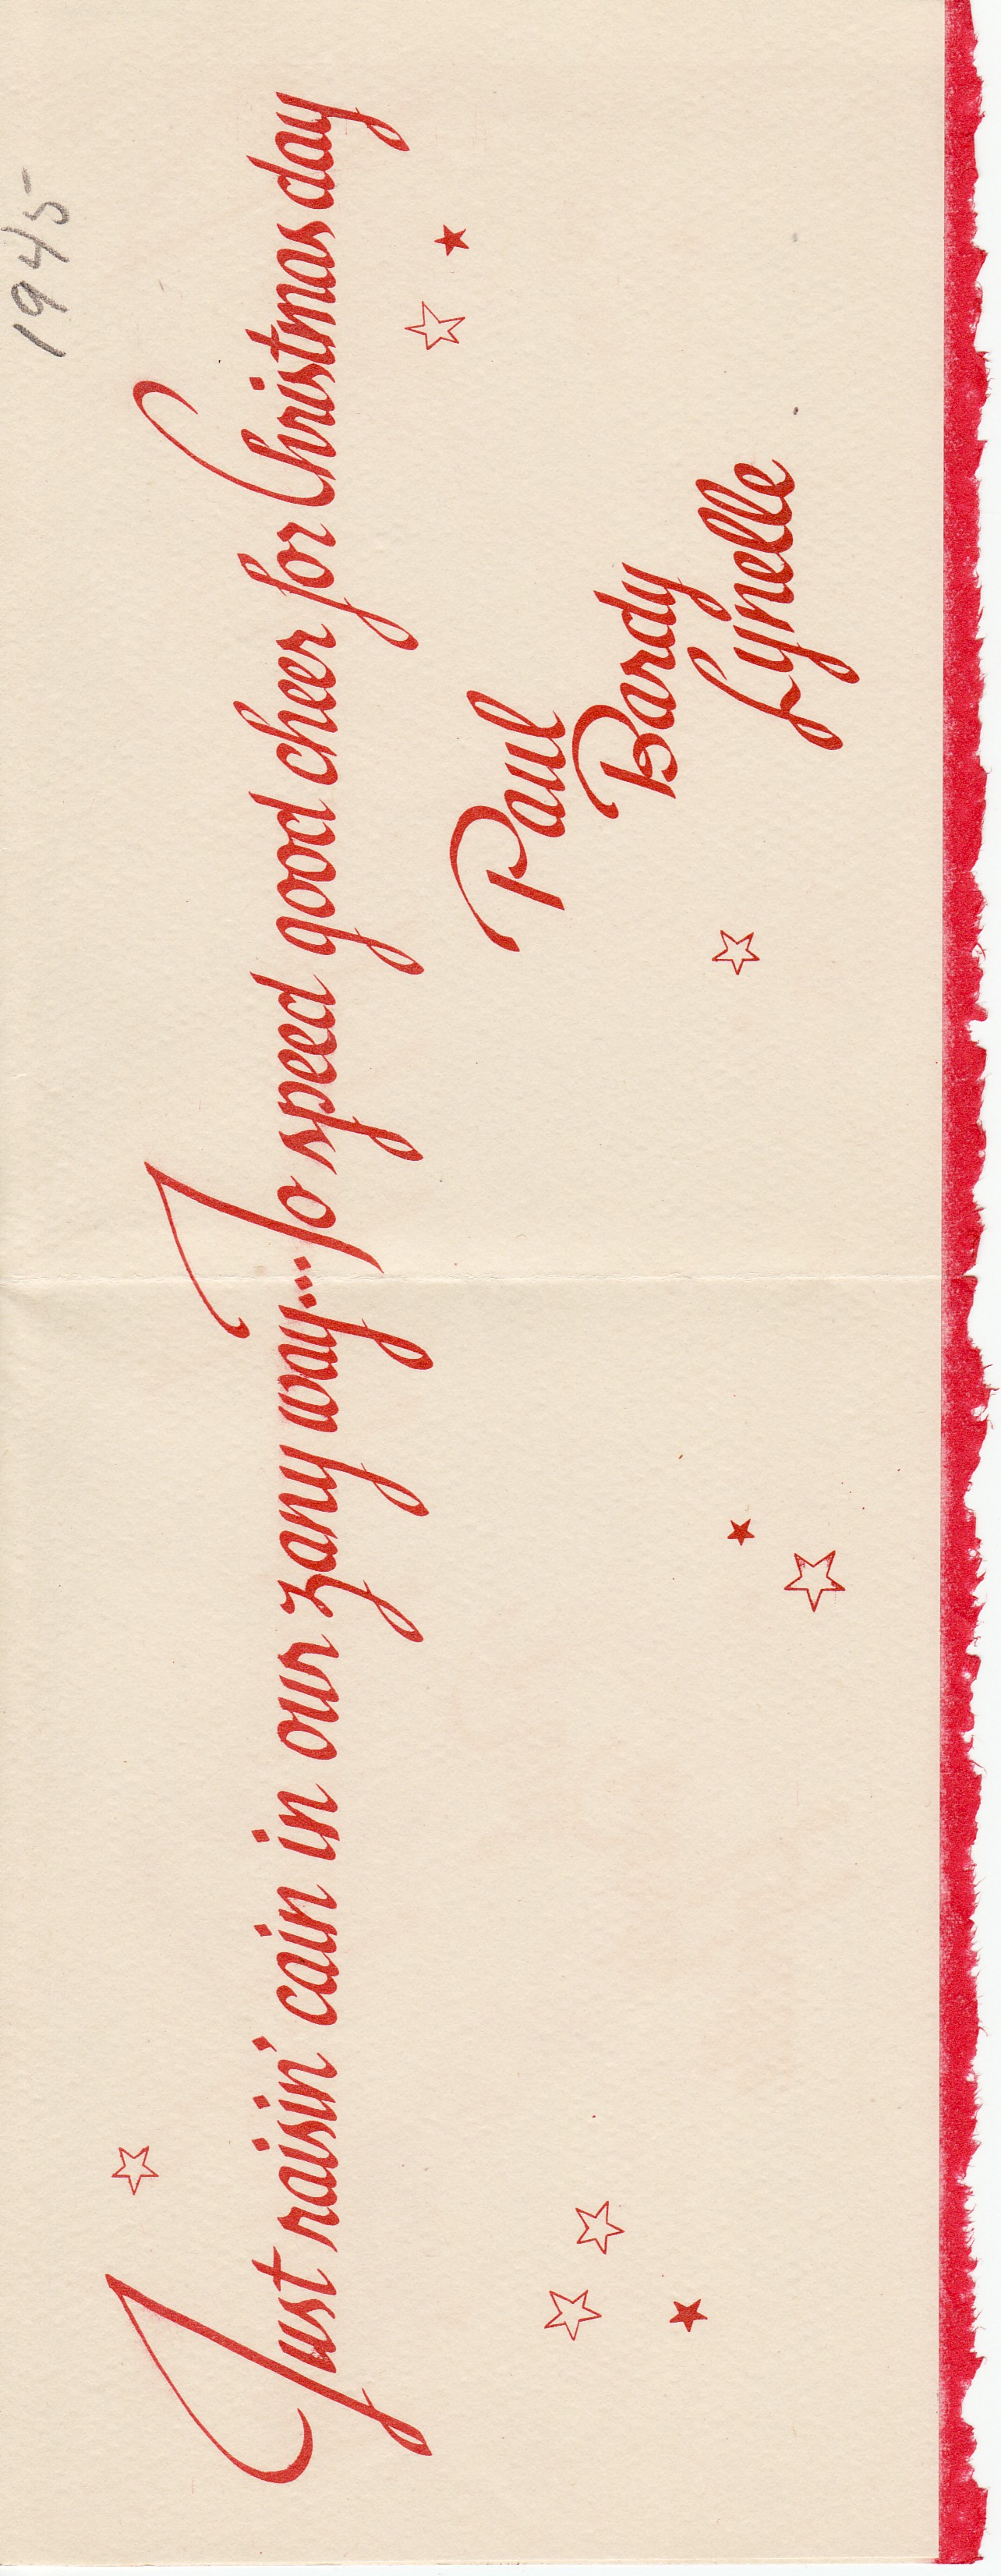 1945
Just raisin' cain in our zany way... To speed good cheer for Christmas day
Paul
Bardy
Lynelle